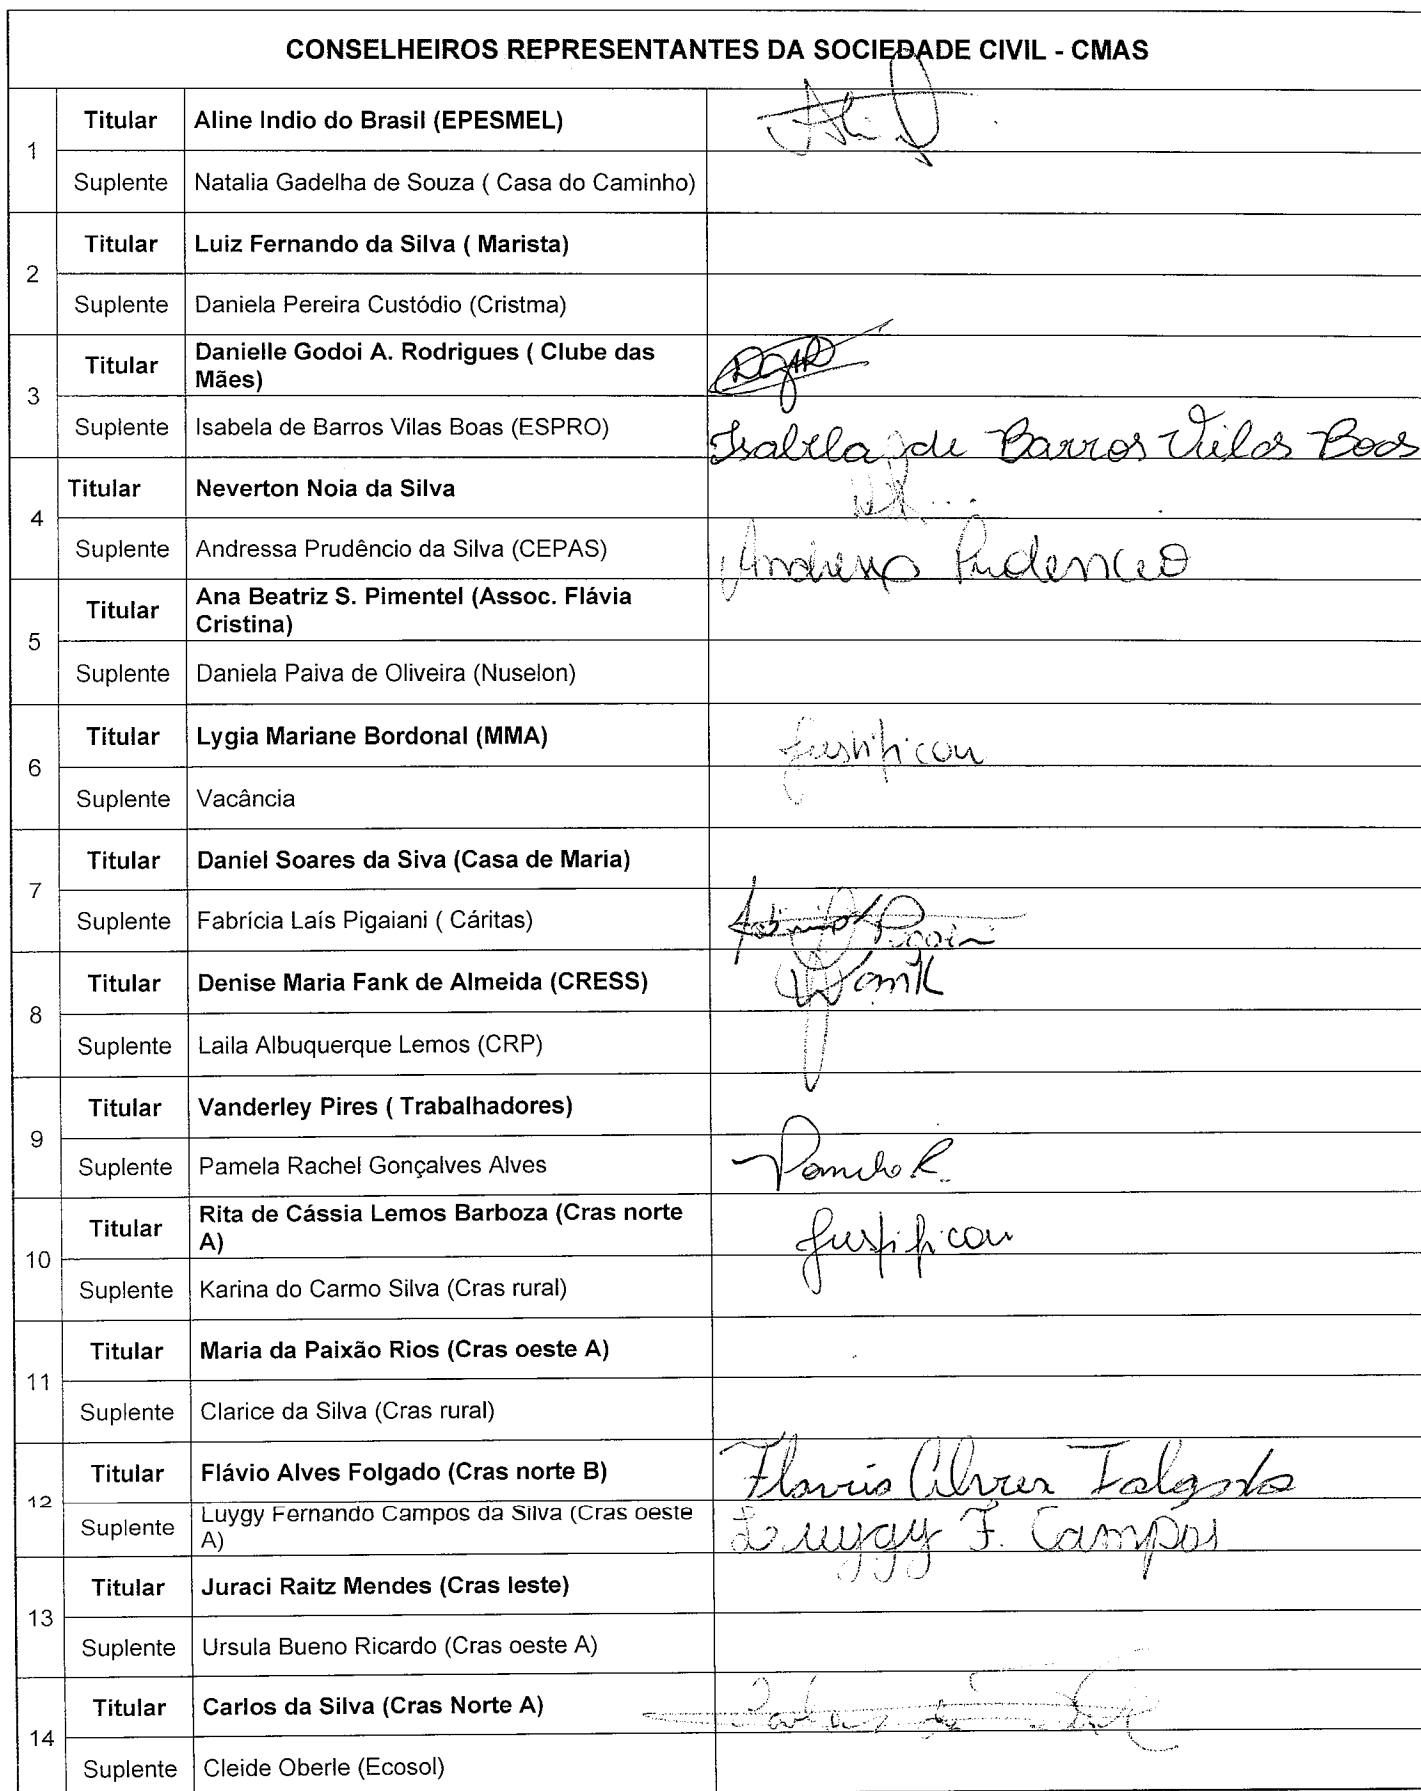 CONSELHEIROS REPRESENTANTES DA SOCIEDADE CIVIL - CMAS
1
Titular Aline Indio do Brasil (EPESMEL)
Suplente Natalia Gadelha de Souza ( Casa do Caminho)
2
Titular Luiz Fernando da Silva ( Marista)
Suplente Daniela Pereira Custódio (Cristma)
3
Titular Danielle Godoi A. Rodrigues ( Clube das
Mães)
Suplente Isabela de Barros Vilas Boas (ESPRO) Isabela de Barros Vilas Boas
4
Titular Neverton Noia da Silva
Suplente Andressa Prudêncio da Silva (CEPAS) Andressa Prudencio
5
Titular Ana Beatriz S. Pimentel (Assoc. Flávia
Cristina)
Suplente Daniela Paiva de Oliveira (Nuselon)
6
Titular Lygia Mariane Bordonal (MMA) justificou
Suplente Vacância
7
Titular Daniel Soares da Siva (Casa de Maria)
Suplente Fabrícia Laís Pigaiani ( Cáritas)
8
Titular Denise Maria Fank de Almeida (CRESS) Fank
Suplente Laila Albuquerque Lemos (CRP)
9
Titular Vanderley Pires ( Trabalhadores)
Suplente Pamela Rachel Gonçalves Alves Pamela R.
10
Titular Rita de Cássia Lemos Barboza (Cras norte
A) justificou
Suplente Karina do Carmo Silva (Cras rural)
11
Titular Maria da Paixão Rios (Cras oeste A)
Suplente Clarice da Silva (Cras rural)
12
Titular Flávio Alves Folgado (Cras norte B) Flavio Alves Folgado
Suplente Luygy Fernando Campos da Silva (Cras oeste
A) Luygy F. Campos
13
Titular Juraci Raitz Mendes (Cras leste)
Suplente Ursula Bueno Ricardo (Cras oeste A)
14
Titular Carlos da Silva (Cras Norte A) Carlos da Silva
Suplente Cleide Oberle (Ecosol)